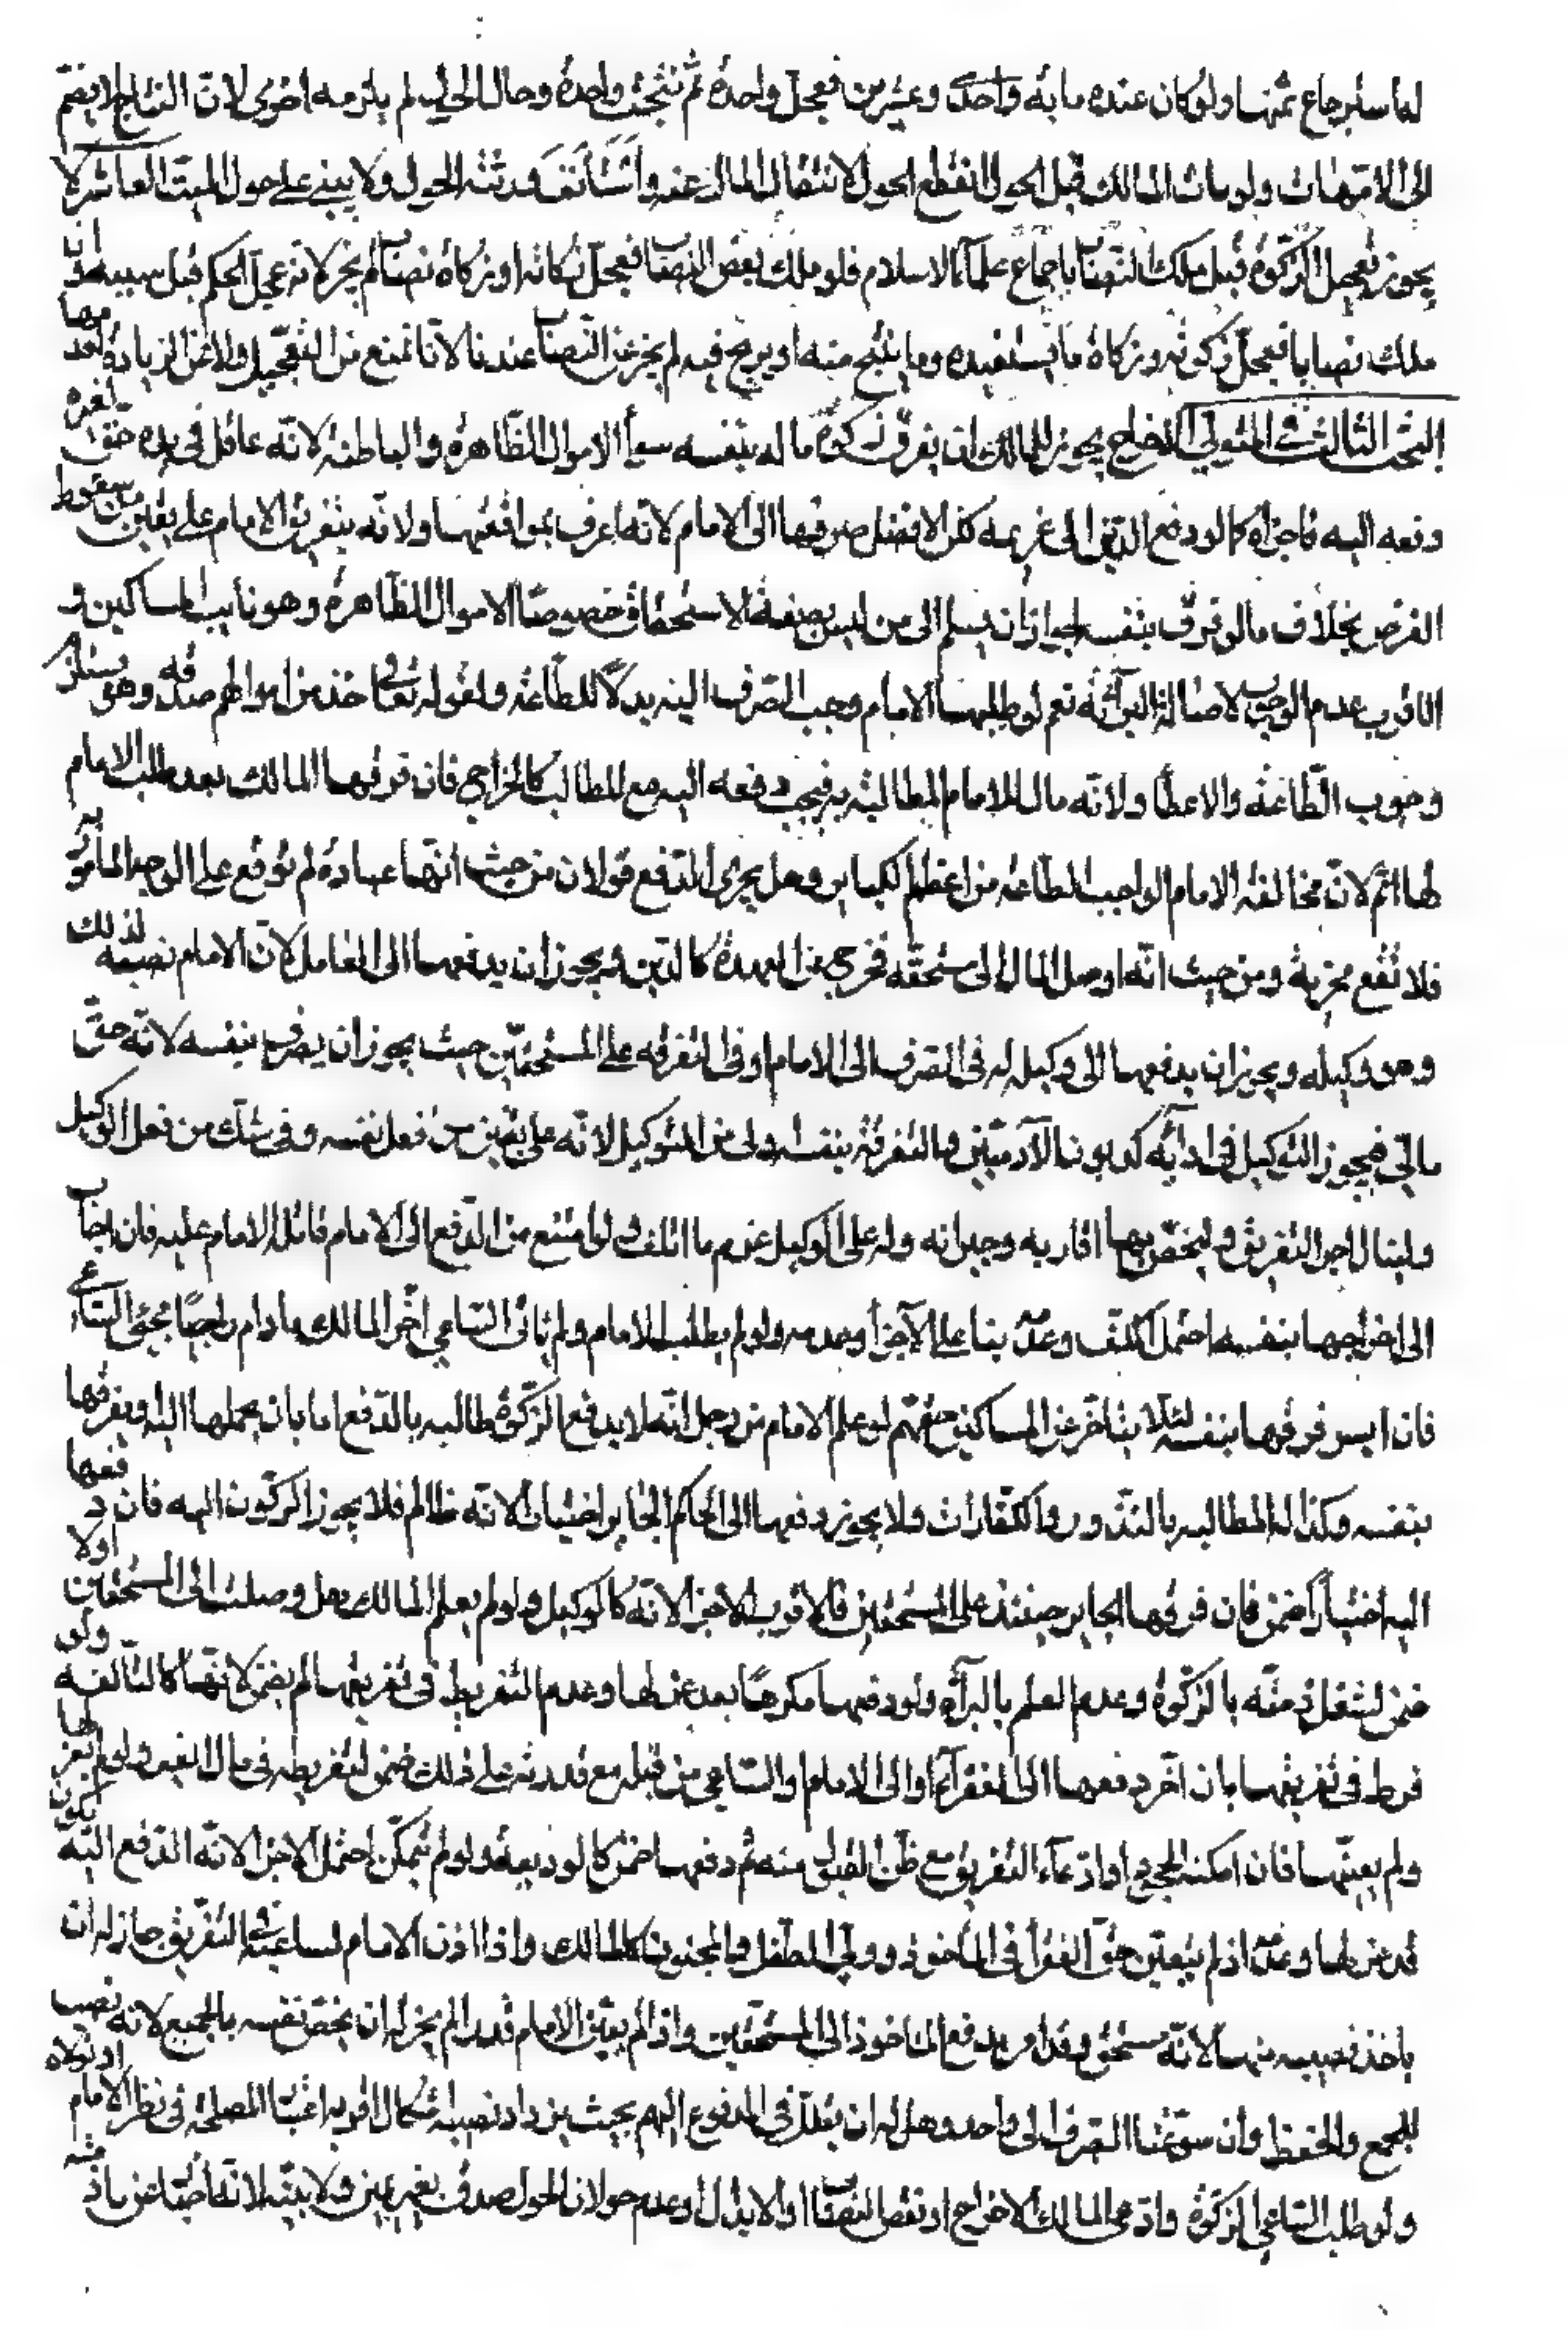 لها استرجاع ثمنها ولو كان عنده مايه واحدى وعشرين فعجل واحدة ثم نتجت واحدة وحال الحول لم يلزمه اخرى لان النتاج لا يضم
الى الامهات ولو مات المالك قبل الحول انقطع الحول لانتقال المال عنه واستأنف ورثته الحول ولا يبنى على حول الميت العاشر لا
يجوز تعجيل الزكوة قبل ملك النصاب باجماع علمآء الاسلام فلو ملك بعض النصاب فعجل زكاته او زكاة نصاب لم يجز لانه عجل الحكم قبل سببه ولو ان
ملك نصابا فعجل زكوته وزكاة ما يستفيده وما ينتج منه او يربح فيه لم يجز عن النصاب عندنا لانا نمنع من التعجيل ولا عن الزيادة لعدمها
البحث الثالث في المتولي للاخراج يجوز للمالك ان يفرق زكوة ماله بنفسه سوآء الاموال الظاهرة والباطنة لانه عاقل في يده حق لغيره
دفعه اليه فاجزاه كما لو دفع الدين الى غريمه لكن الافضل صرفها الى الامام لانه اعرف بمواقعها ولانه بتفريق الامام على يقين من سقوط
الفرض بخلاف ما لو فرق بنفسه لجواز ان يسلم الى من ليس بصفة الاستحقاق خصوصا الاموال الظاهرة وهو نايب المساكين و
الاقرب عدم الوجوب لاصالة البرآئة نعم لو طلبها الامام وجب الصرف اليه بدلا للطاعة ولقوله تعالى خذ من اموالهم صدقة وهو يستلزم
وجوب الطاعة والاعطآء ولانه مال للامام المطالبة به فيجب دفعه اليه مع المطالبة كالخراج فان فرقها المالك بعد طلب الامام
لها اثم لان مخالفة الامام الواجب الطاعة من اعظم الكباير وهل يجزى الدفع قولان من حيث انها عبادة لم توقع على الوجه المأمور به
فلا تقع مجزية ومن حيث انه اوصل المال الى مستحقه فخرج عن العهدة كالدين ويجوز ان يدفعها الى العامل لان الامام نصبه لذلك
وهو وكيله ويجوز ان يدفعها الى وكيل له في الصرف الى الامام او في التفرقة على المستحقين حيث يجوز ان يصرف بنفسه لانه حق
مالي فيجوز التوكيل في ادآئه كديون الآدميين والتفرقة بنفسه اولى من التوكيل لانه على يقين من فعل نفسه وفي شك من فعل الوكيل
ولينال اجر التفريق وليخص بها اقاربه وجيرانه وله على الوكيل غرم ما اتلف ولو امتنع من الدفع الى الامام قاتله الامام عليه فان اجاب
الى اخراجها بنفسه احتمل الكف وعدمه بنا على الاجزآء وعدمه ولو لم يطلب الامام ولم يات الساعي اخر المالك ما دام راجيا مجئ الساعي
فان ايس فرقها بنفسه لئلا يتاخر عن المساكين حقهم لو علم الامام من رجل انه لا يدفع الزكوة طالبه بالدفع اما بان يحملها اليه او يفرقها
بنفسه وكذا له المطالبه بالنذور والكفارات ولا يجوز دفعها الى الحاكم الجاير اختيارا لانه ظالم فلا يجوز الركون اليه فان دفعها
اليه اختيارا ضمن فان فرقها الجاير حينئذ على المستحقين فالاقرب الاجزآء لانه كالوكيل ولو لم يعلم المالك هل وصلت الى المستحقين او لا
ضمن لشغل ذمته بالزكوة وعدم العلم بالبرآة ولو دفعها مكرها بعد عزلها وعدم التفريط في تفريقها لم يضمن لانها كالتالفه ولو
فرط في تفريقها بان اخر دفعها الى الفقرآء او الى الامام او الساعي من قبله مع قدرته على ذلك ضمن لتفريطه في مال الغير ولو لم يعزلها
ولم يعينها فان امكنه الجحود او ادعآء التفريق مع ظن القبول منه ثم دفعها ضمن كالوديعة ولو لم يتمكن احتمل الاجزآء لانه الدفع اليه يكون
قد عزلها وعدمه اذ لم يتعين حق الفقرآء في المأخوذ وولي الطفل والمجنون كالمالك واذا اذن الامام لساعيه في التفريق جاز له ان
ياخذ نصيبه منها لانه مستحق وقد امر بدفع الماخوذ الى المستحقين واذا لم يعين الامام قدرا لم يجز له ان يخص نفسه بالجميع لانه نصب
للجمع والحفظ وان سوغنا الصرف الى واحد وهل له ان يقلل في المدفوع اليهم بحيث يزداد نصيبه اشكال اقربه اعتبار المصلحة في نظر الامام او نظره
ولو طلب الساعي الزكوة وادعى المالك الاخراج او نقص النصاب او الابدال او عدم حولان الحول صدق بغير يمين ولا بينة لانها جناية عن باذمته